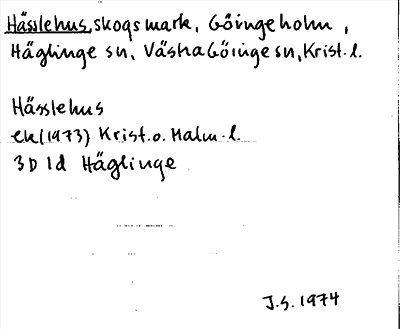 Hässlehus, skogsmark, Göingeholm,
Häglinge sn, Västra Göinge sn, Krist. l.
Hässlehus
ek (1973) Krist. o. Malm. l.
3D 1d Häglinge
J.G. 1974